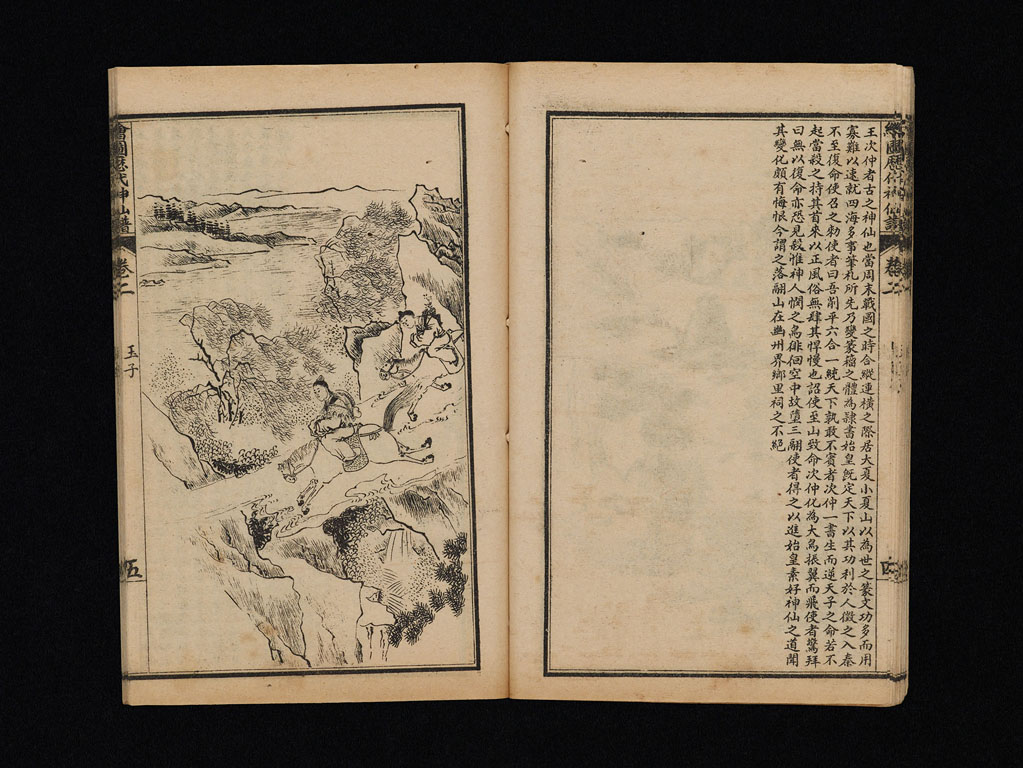 王次仲者古之神仙也當周末戰國之時合縱連橫之際居大夏小夏山以為世之篆文功多而用
寡難以速就四海多事筆札所先乃變篆籀之體為隸書始皇既定天下以其功利於人徵之入秦
不至復使召之勅使者曰吾削平六合一統天下孰敢不賓者次仲一書生而逆天子之命若不
起當殺之持其首來以正風俗無肆其悍慢也詔使至山致命次仲化為大鳥振翼而飛使者驚拜
曰無以復命亦恐見殺惟神人憫之鳥徘徊空中故墮三翮使者得之以進始皇素好神仙之道聞
其變化頗有悔恨今謂之落翮山在幽州界鄉里祠之不絕
卷二
四
繪圖歷代神仙譜
卷二
玉子
五